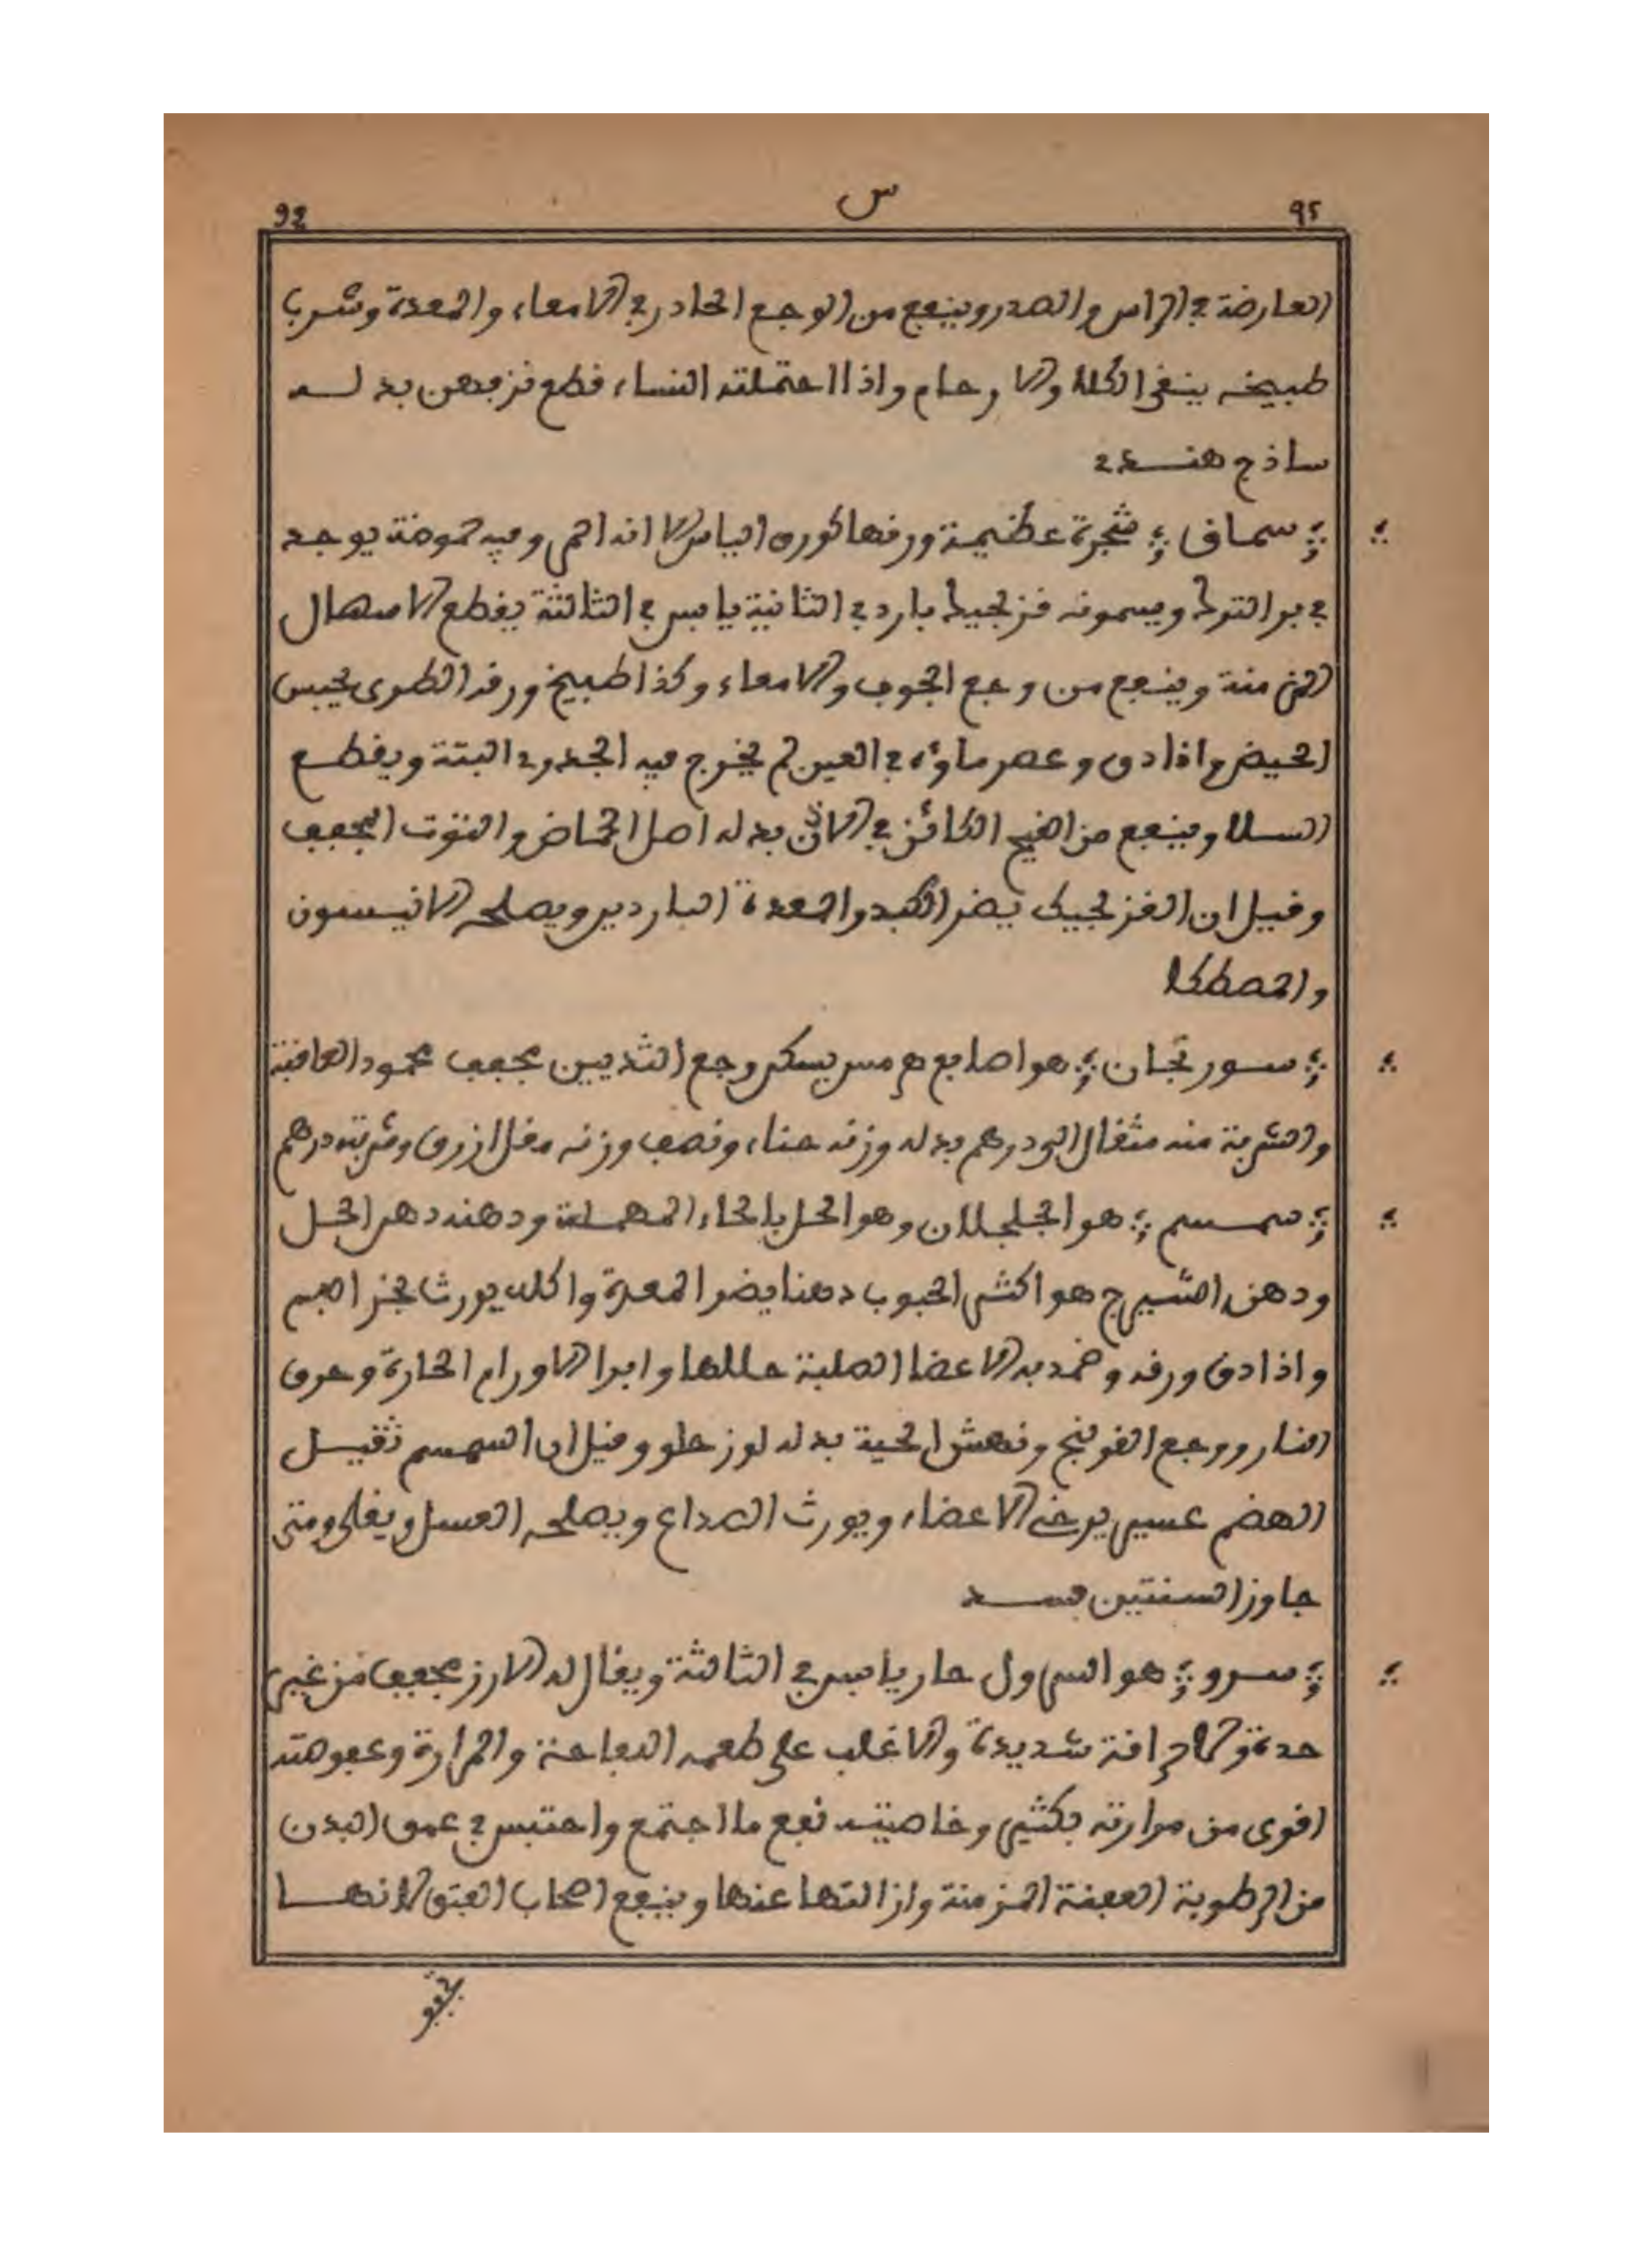 92 س 95
العارضة في الراس والصدر وينفع من الوجع الحادر في الامعاء والمعدة وشرب
طبيخه ينقي الكلا والارحام واذا احتملته النساء قطع نزفهن بدله
ساذج هندي
سماق شجرة عظيمة ورقها كورق الياس الا انه احمر وفيه حموضة يوجد
في بر الترك ويسمونه قزلجيك بارد في الثانية يابس في الثالثة يقطع الاسهال
المزمنة وينفع من وجع الجوف والامعاء وكذا طبيخ ورقه الطري يحبس
الحيض واذا دق وعصر ماؤه في العين لم يخرج فيه الجدري البتة ويقطع
السلا وينفع من القيح الكائن في الاذن بدله اصل الحماض والتوت المجفف
وقيل ان القزلجيك يضر الكبد والمعدة الباردين ويصلحه الانيسون
والمصطكا
سورنجان هو اصابع هرمس يسكن وجع الثديين مجفف محمود العاقبة
والشربة منه مثقال الى درهم بدله وزنه حناء ونصف وزنه مقل ازرق وشربته درهم
سمسم هو الجلجلان وهو الحل بالحاء المهملة ودهنه دهن الحل
ودهن الشيرج هو اكثر الحبوب دهنا يضر المعدة واكله يورث بخر الفم
واذا دق ورقه وضمد به الاعضا الصلبة حللها وابرا الاورام الحارة وحرق
النار ووجع القولنج ونهش الحية بدله لوز حلو وقيل ان السمسم ثقيل
الهضم عسير يرخي الاعضاء ويورث الصداع ويصلحه العسل ويقلى ومتى
جاوز السنتين فسد
سرو هو السرول حار يابس في الثالثة ويقال له الارز مجفف من غير
حدة ولا حرافة شديدة والاغلب على طعمه البعاعة والمرارة وعفوصته
اقوى من مرارته بكثير وخاصيته نفع ما اجتمع واحتبس في عمق البدن
من الرطوبة العفنة المزمنة وازالتها عنها وينفع اصحاب الفتق لانها
تجفف